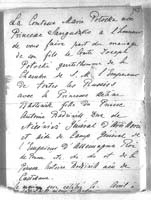 La Comtesse Marie Potocka née
Princesse Sanguszko a l'honneur
de vous faire part du mariage
de son fils le Comte Joseph
Potocki gentilhomme de la
Chambre de S. M. l'Empereur
de toutes les Russies
avec la Princesse Hélène
Radziwill fille du Prince
Antoine Radziwill Duc de
Nieśwież Général
et aide de Camp Général
l'Empereur d'Allemagne Roi
de Prusse et de la
Princesse Radziwill née de
Castellane